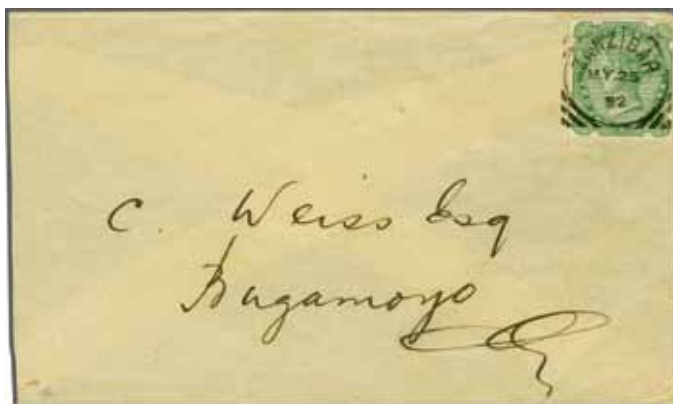 ZANZIBAR
MY 25
92
C. Weiss Esq
Bagamoyo